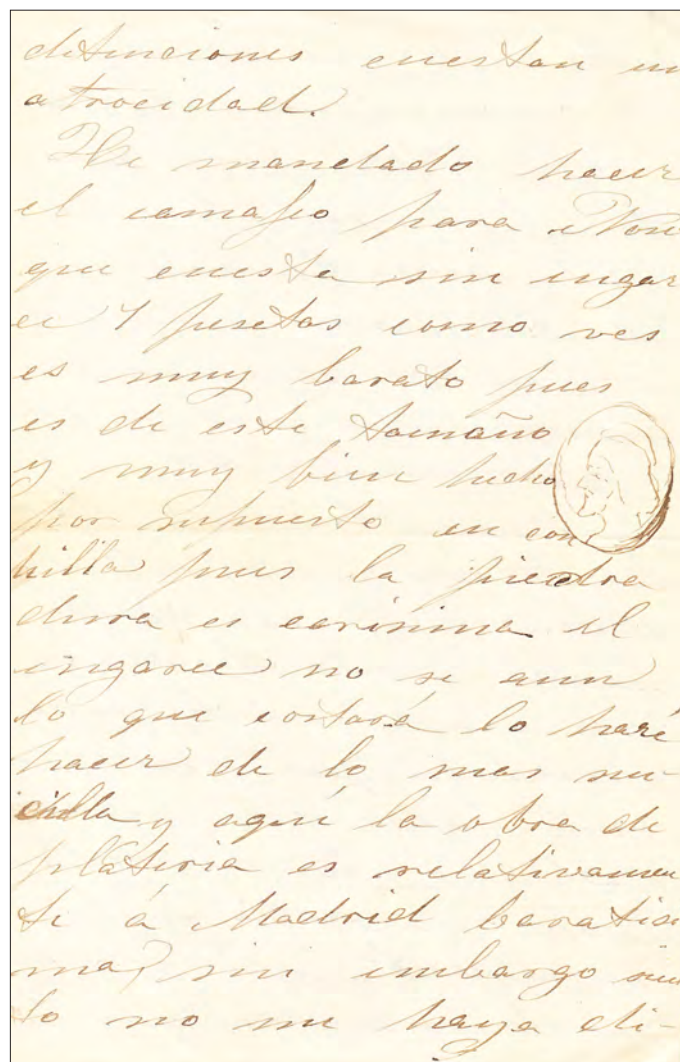 detenciones cuestan un
atrocidad.
He mandado hacer
el camafeo para
que cuesta sin engar
ce 7 pesetas como ves
es muy barato pues
es de este tamaño
y muy bien hecho
por supuesto en con
chilla pues la piedra
dura es carisima el
engarce no se aun
lo que costará lo haré
hacer de lo mas sen-
cillo y aqui la obra de
plateria es relativamen
te á Madrid baratisi
ma, sin embargo sien
to no me haya di-